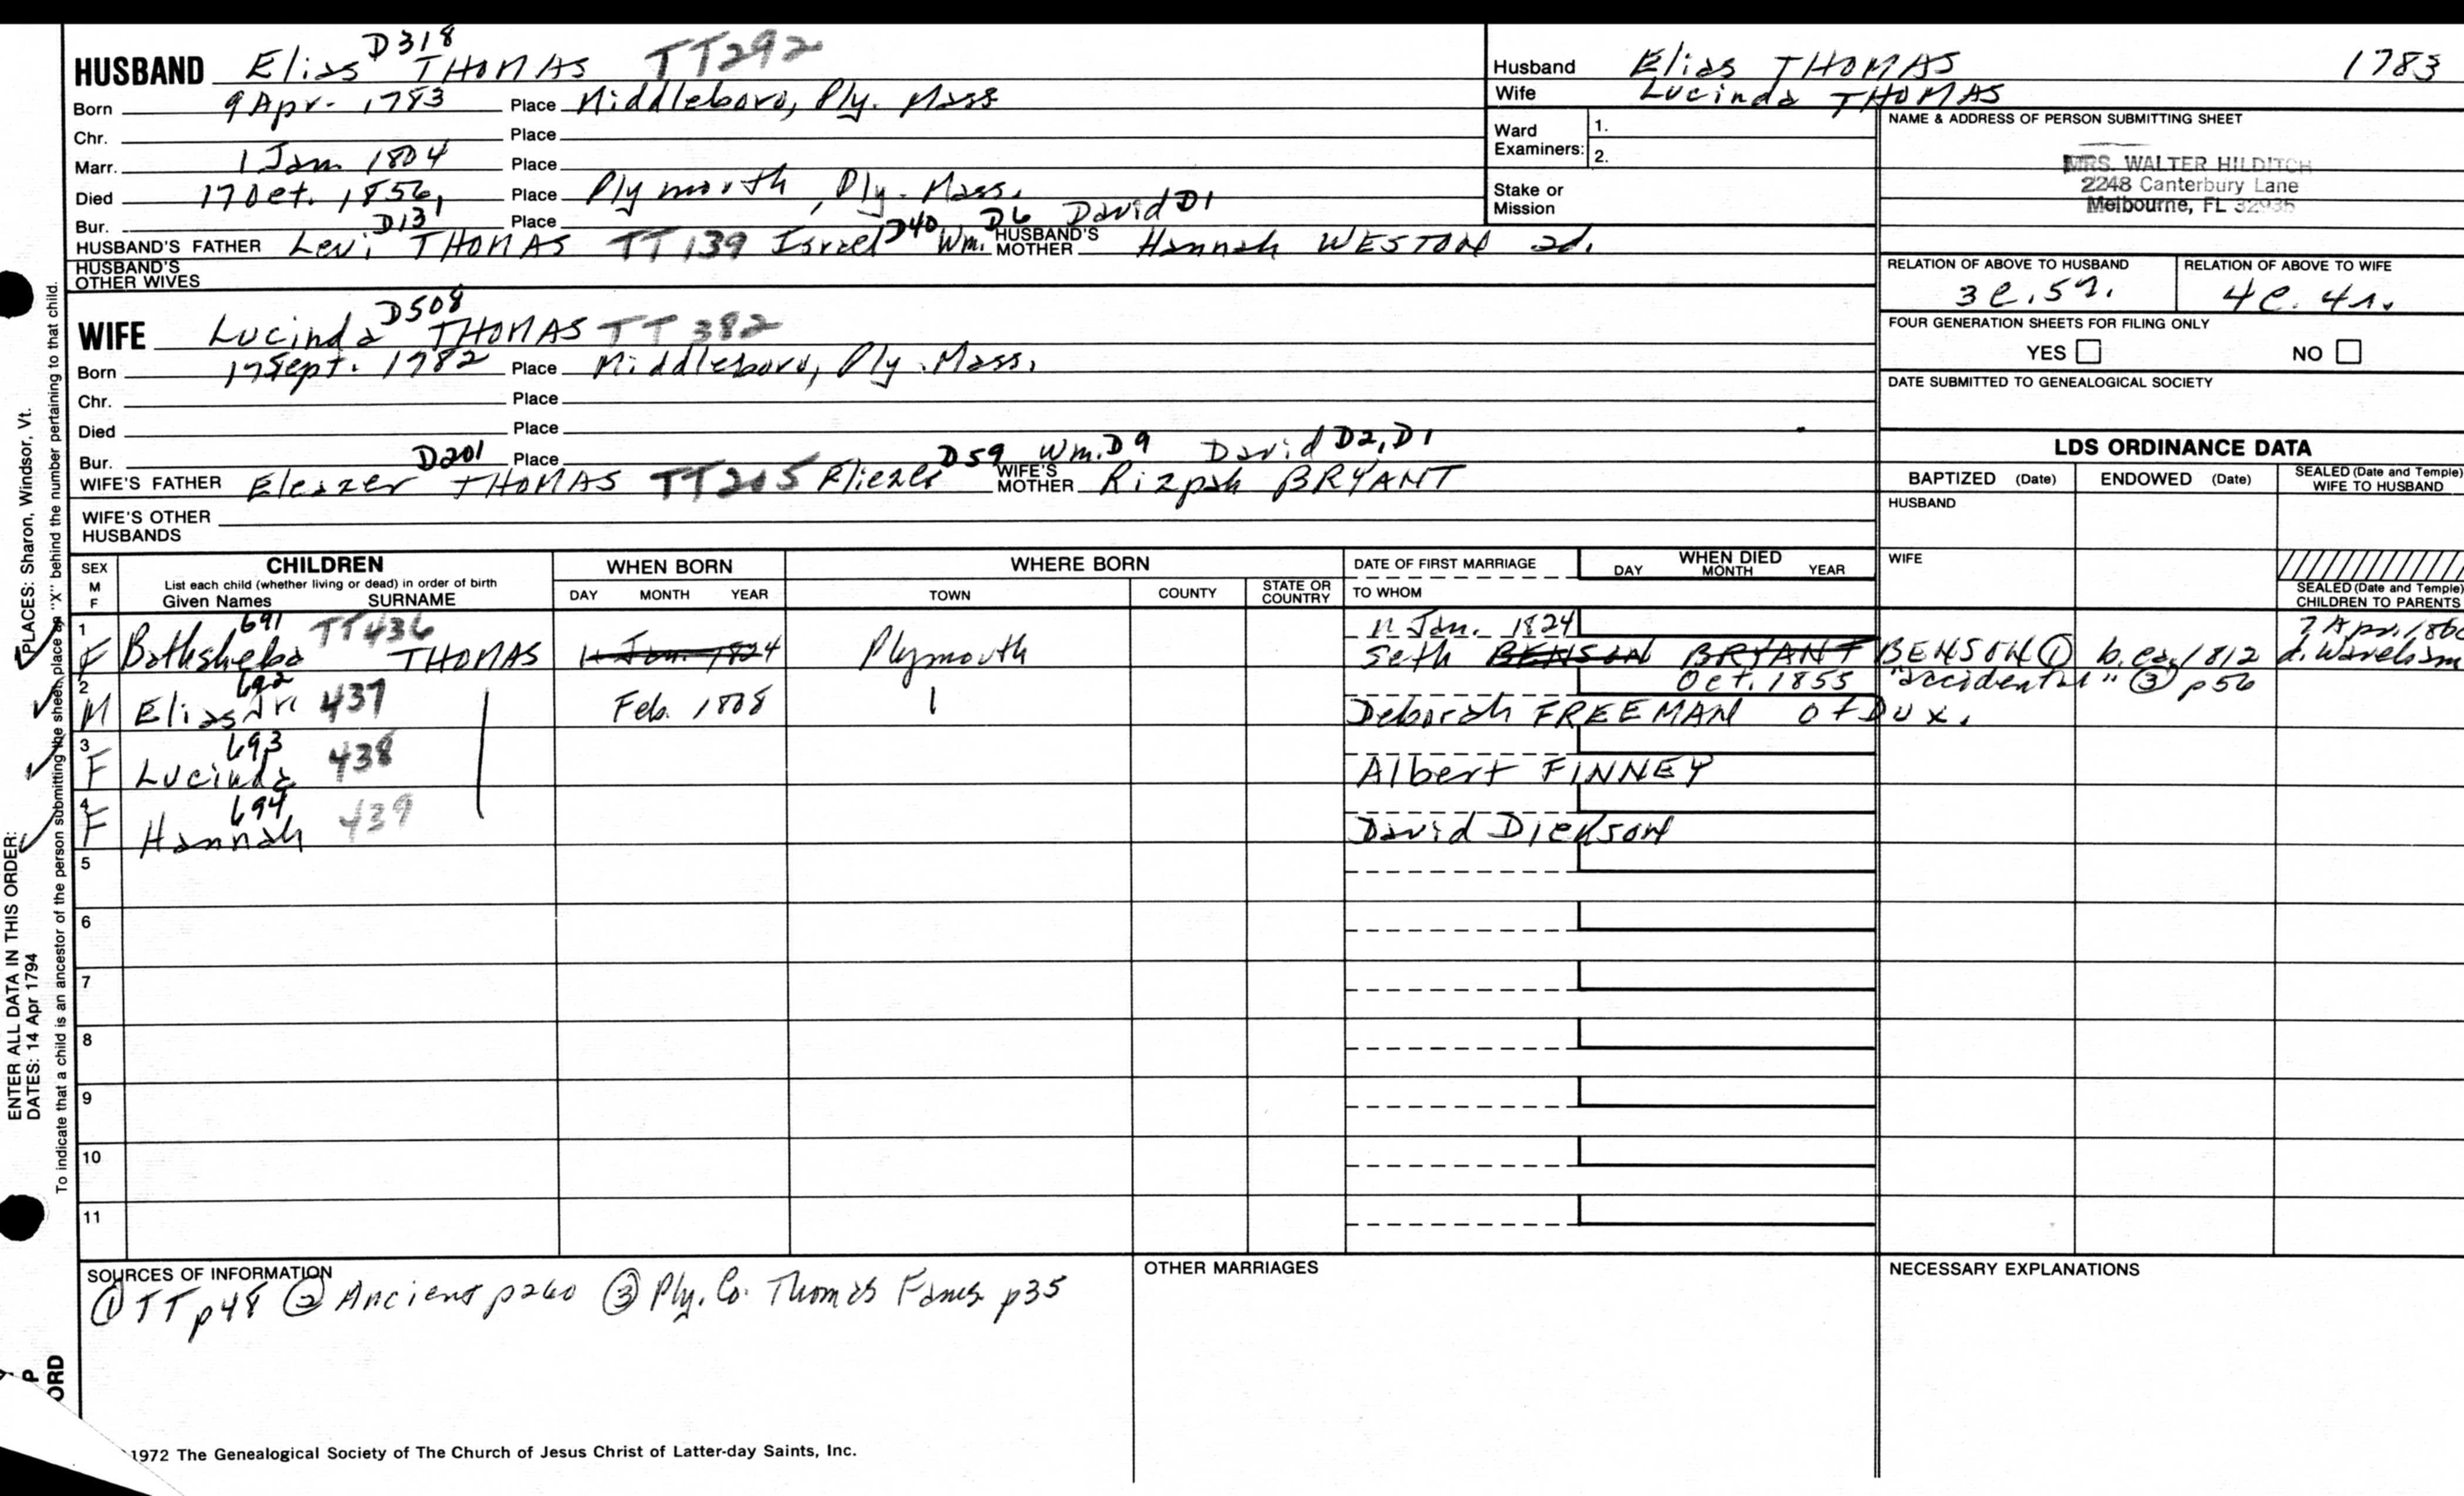 D318
HUSBAND Elias THOMAS TT292
Born 9 Apr. 1783 Place Middleboro, Ply. Mass
Chr. Place
Marr. 1 Jan 1804 Place
Died 17 Oct. 1856, Place Plymouth, Ply. Mass.
Bur. Place
D131 D40 D6 David D1
HUSBAND'S FATHER Levi THOMAS TT139 Israel Wm. HUSBAND'S MOTHER Hannah WESTON 2d.
HUSBAND'S OTHER WIVES
D508
WIFE Lucinda THOMAS TT 382
Born 17 Sept. 1782 Place Middleboro, Ply. Mass.
Chr. Place
Died Place
Bur. Place
D201 D59 Wm. D9 David D2, D1
WIFE'S FATHER Eleazer THOMAS TT205 Eliezer WIFE'S MOTHER Rizpah BRYANT
WIFE'S OTHER HUSBANDS
Husband Elias THOMAS 1783
Wife Lucinda THOMAS
Ward Examiners: 1.
2.
Stake or Mission
NAME & ADDRESS OF PERSON SUBMITTING SHEET
MRS. WALTER HILDITCH
2248 Canterbury Lane
Melbourne, FL 32935
RELATION OF ABOVE TO HUSBAND RELATION OF ABOVE TO WIFE
3c.5r. 4c.4r.
FOUR GENERATION SHEETS FOR FILING ONLY
YES NO
DATE SUBMITTED TO GENEALOGICAL SOCIETY
LDS ORDINANCE DATA
BAPTIZED (Date) ENDOWED (Date) SEALED (Date and Temple) WIFE TO HUSBAND
HUSBAND
WIFE
SEALED (Date and Temple) CHILDREN TO PARENTS
SEX M F
CHILDREN
List each child (whether living or dead) in order of birth
Given Names SURNAME
WHEN BORN
DAY MONTH YEAR
WHERE BORN
TOWN COUNTY STATE OR COUNTRY
DATE OF FIRST MARRIAGE
TO WHOM
WHEN DIED
DAY MONTH YEAR
1 691 TT436 11 Jan. 1824 7 Apr. 186
F Bathsheba THOMAS 11 Jan. 1824 Plymouth Seth BENSON BRYANT BENSON ① b. ca. 1812 d. Wareham
2 692 437 Oct. 1855 "accidental" ③ p56
M Elias Jr. Feb. 1808 Deborah FREEMAN of Dux.
3 693 438
F Lucinda Albert FINNEY
4 694 439
F Hannah David DICKSON
5
6
7
8
9
10
11
SOURCES OF INFORMATION
① TT p48 ② Ancient p260 ③ Ply. Co. Thomas Fams p35
OTHER MARRIAGES
NECESSARY EXPLANATIONS
1972 The Genealogical Society of The Church of Jesus Christ of Latter-day Saints, Inc.
ENTER ALL DATA IN THIS ORDER:
PLACES: Sharon, Windsor, Vt.
DATES: 14 Apr 1794
To indicate that a child is an ancestor of the person submitting the sheet, place an "X" behind the number pertaining to that child.
P
ORD